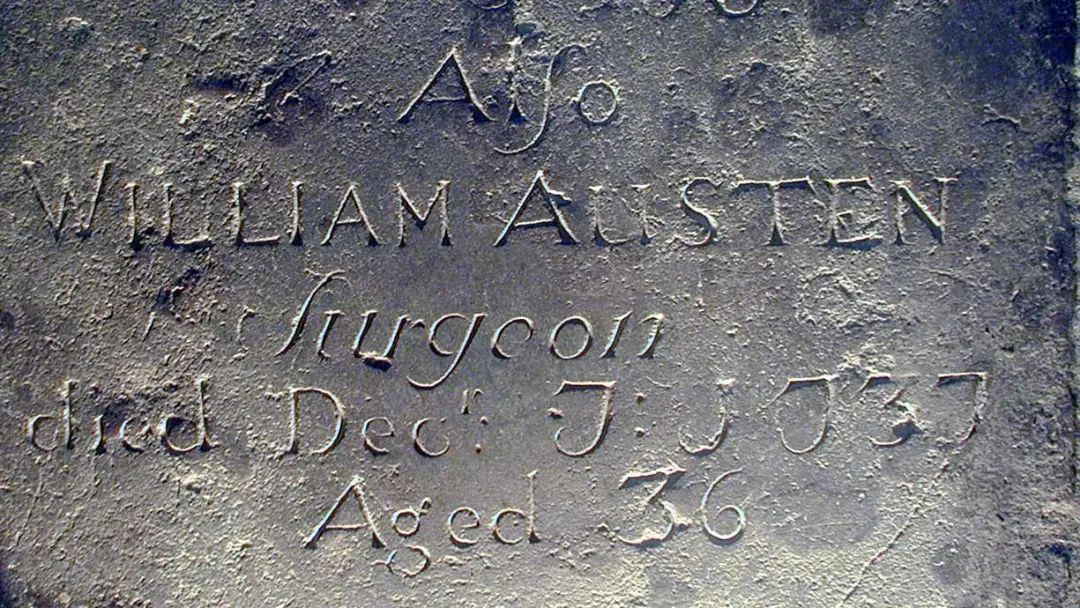 Alſo
WILLIAM AUSTEN
ſurgeon
died Decr: 7: 1737
Aged 36